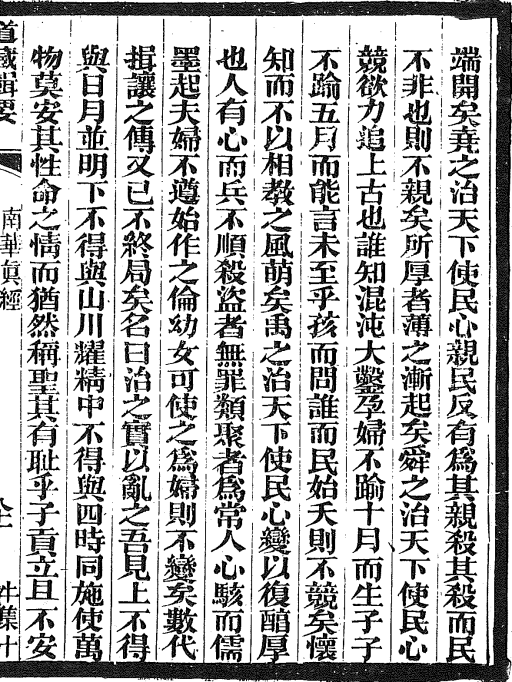 端開矣堯之治天下使民心親民反有爲其親殺其殺而民
不非也則不親矣所厚者薄之漸起矣舜之治天下使民心
競欲力追上古也誰知混沌大鑿孕婦不踰十月而生子子
不踰五月而能言未至乎孩而問誰而民始夭則不競矣懷
知而不以相教之風萌矣禹之治天下使民心變以復醕厚
也人有心而兵不順殺盜者無罪類聚者爲常人心駭而儒
墨起夫婦不遵始作之倫幼女可使之爲婦則不變矣數代
揖讓之傳又已不終局矣名曰治之實以亂之吾見上不得
與日月並明下不得與山川耀精中不得與四時同施使萬
物莫安其性命之情而猶然稱聖其有耻乎子貢立且不安
道藏輯要
南華眞經
牛集十